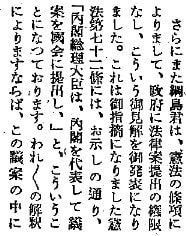 さらにまた綱島君は、憲法の條項に
よりまして、政府に法律案提出の権限
なし、こういう御見解を御発表になり
ました。これは御指摘になりました憲
法第七十二條には、お示しの通り、
「内閣総理大臣は、内閣を代表して議
案を國会に提出し、」と、こういうこ
とになつております。われ〳〵の解釈
によりますならば、この議案の中に